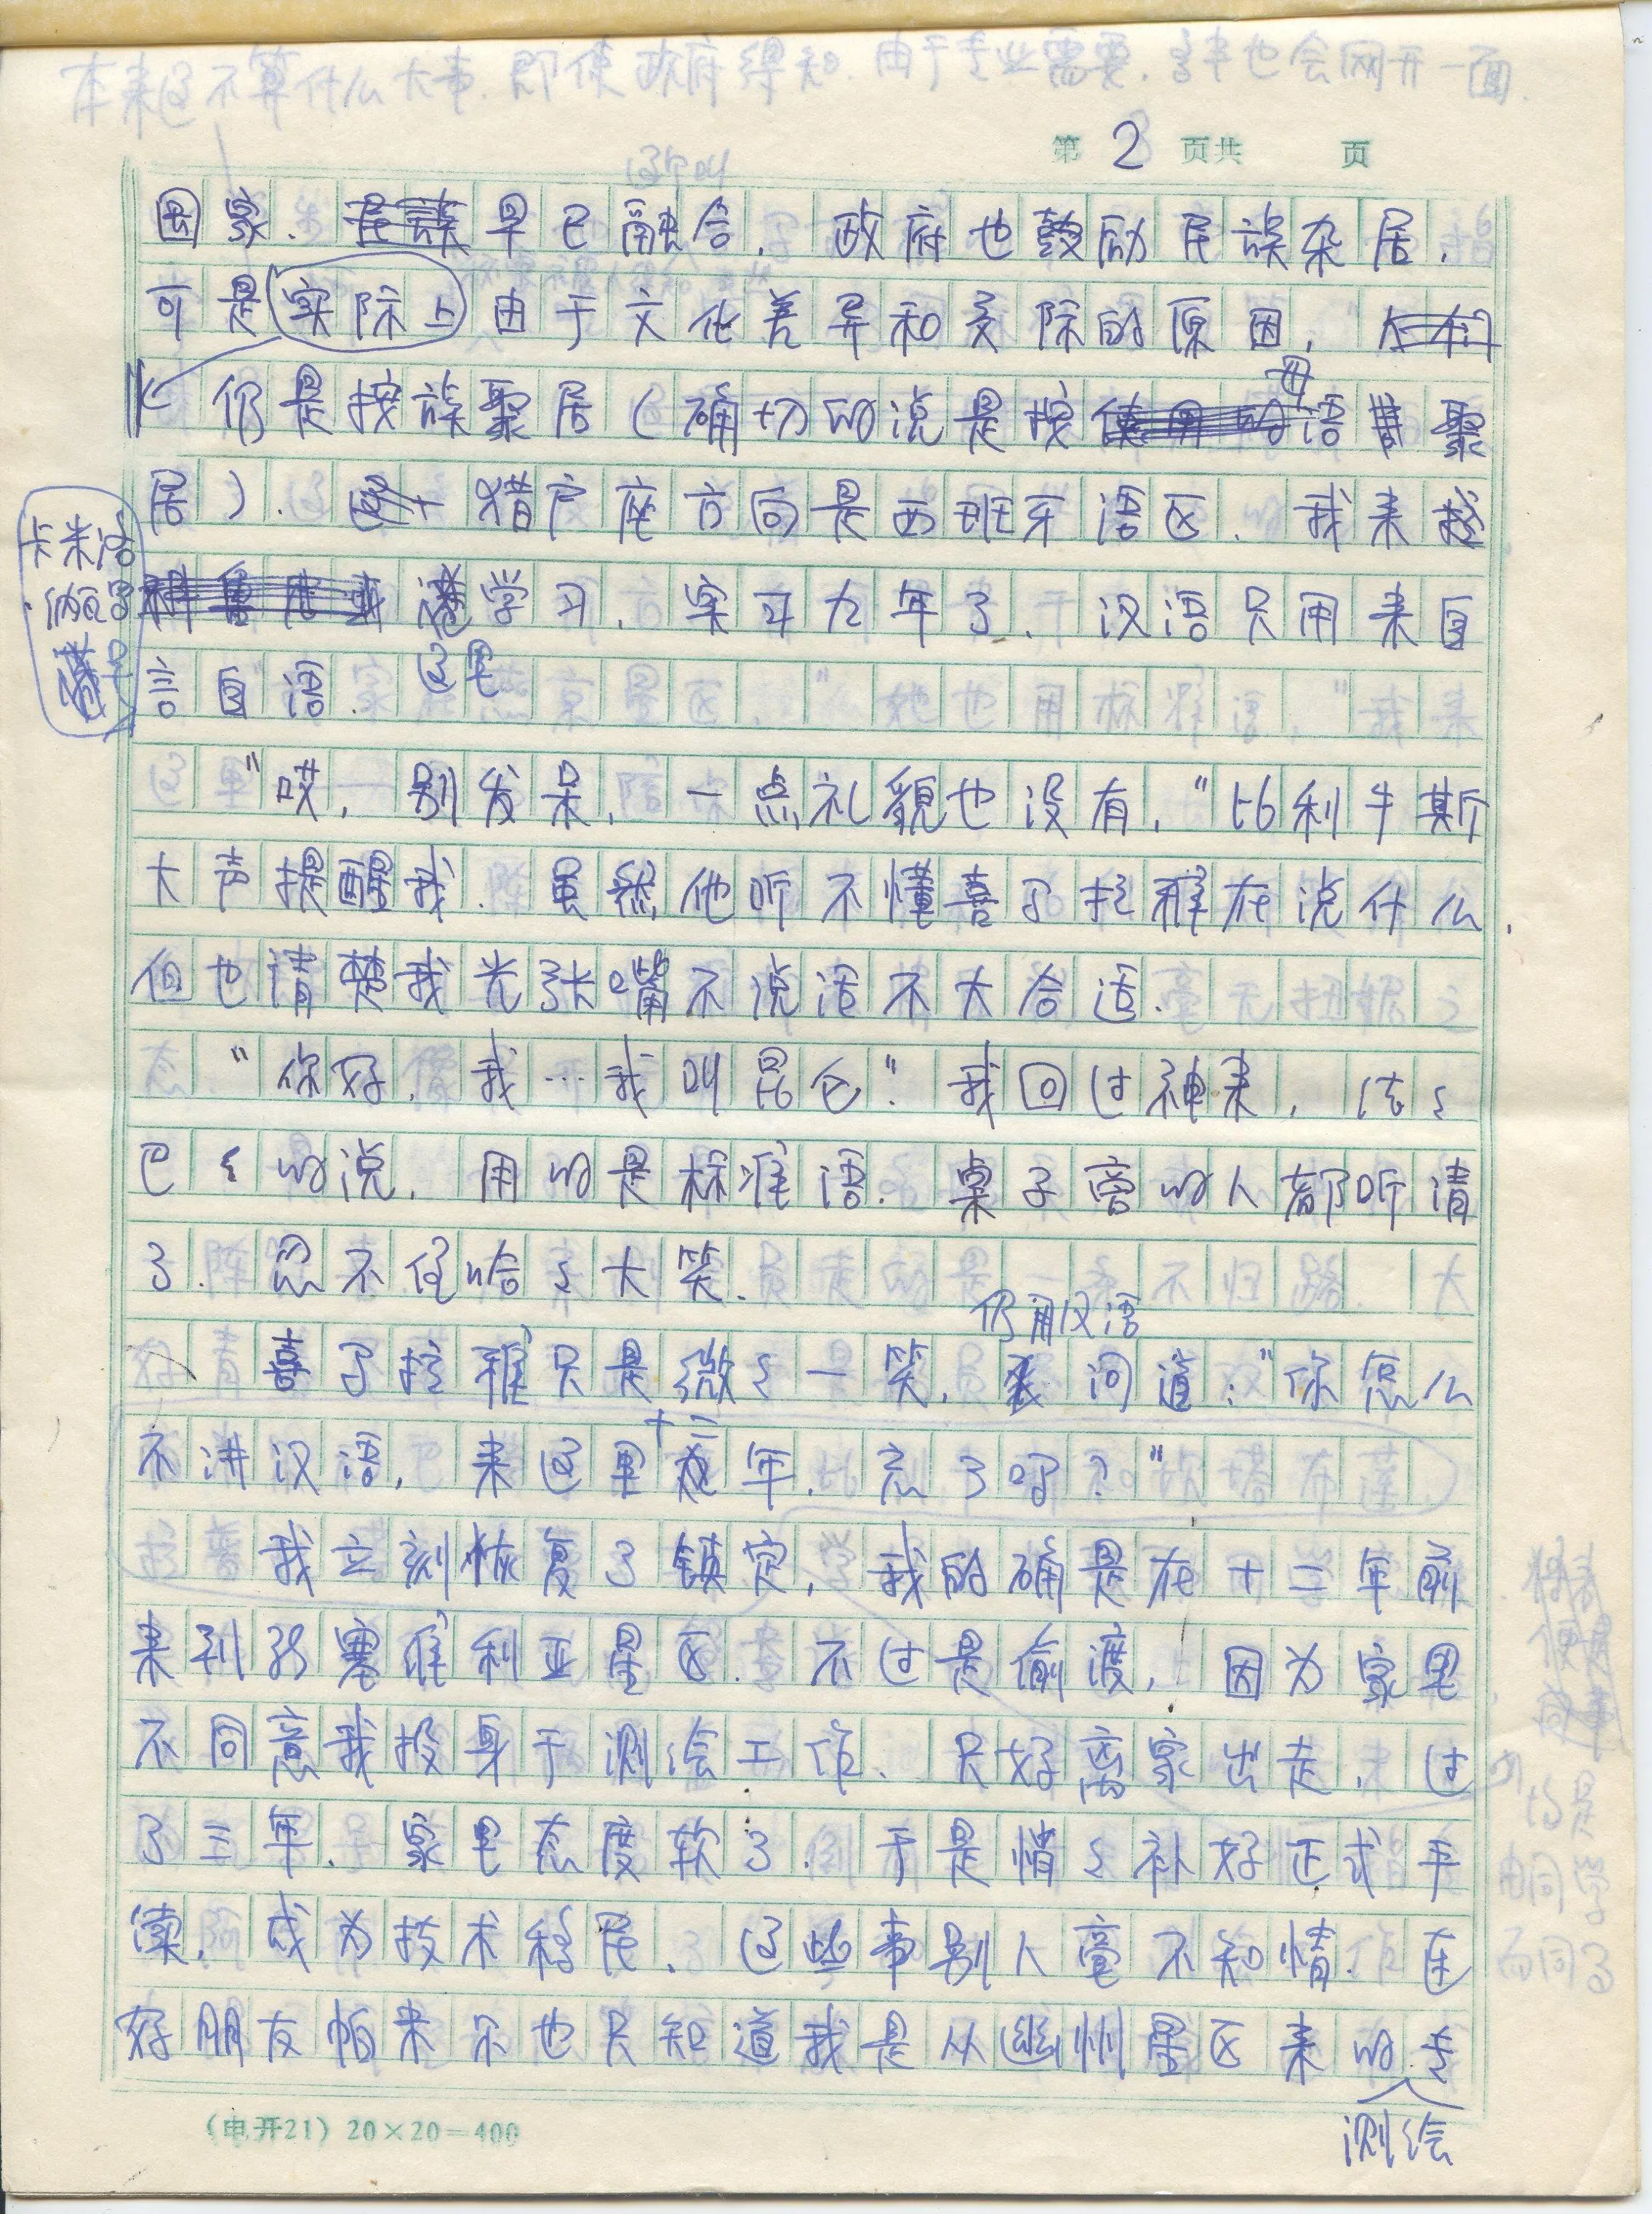 第 2 页共 页
国家.民族早已融合.政府也鼓励民族杂居,
可是实际上由于文化差异和交际的原因,
仍是按族聚居(确切的说是按母语聚
居).猎户座方向是西班牙语区.我来
卡米洛
学习、实习九年了.汉语只用来自
言自语.这里
"哎,别发呆,一点礼貌也没有,"比利牛斯
大声提醒我.虽然他听不懂喜马拉雅在说什么,
但也清楚我光张嘴不说话不大合适.
"你好,我…我叫昆仑."我回过神来,结々
巴々的说,用的是标准语.桌子旁的人都听清
了.忍不住哈々大笑.
仍用汉语
喜马拉雅只是微々一笑,问道:"你怎么
不讲汉语,来这里十二年.忘了吗?"
我立刻恢复了镇定,我的确是在十二年前
来到新塞维利亚星区.不过是偷渡,因为家里
不同意我投身于测绘工作、只好离家出走.过
了三年.家里态度软了.于是悄々补好正式手
续,成为技术移民.这些事别人毫不知情.连
好朋友帕米尔也只知道我是从幽州星区来的专
测绘
(电开21) 20×20=400